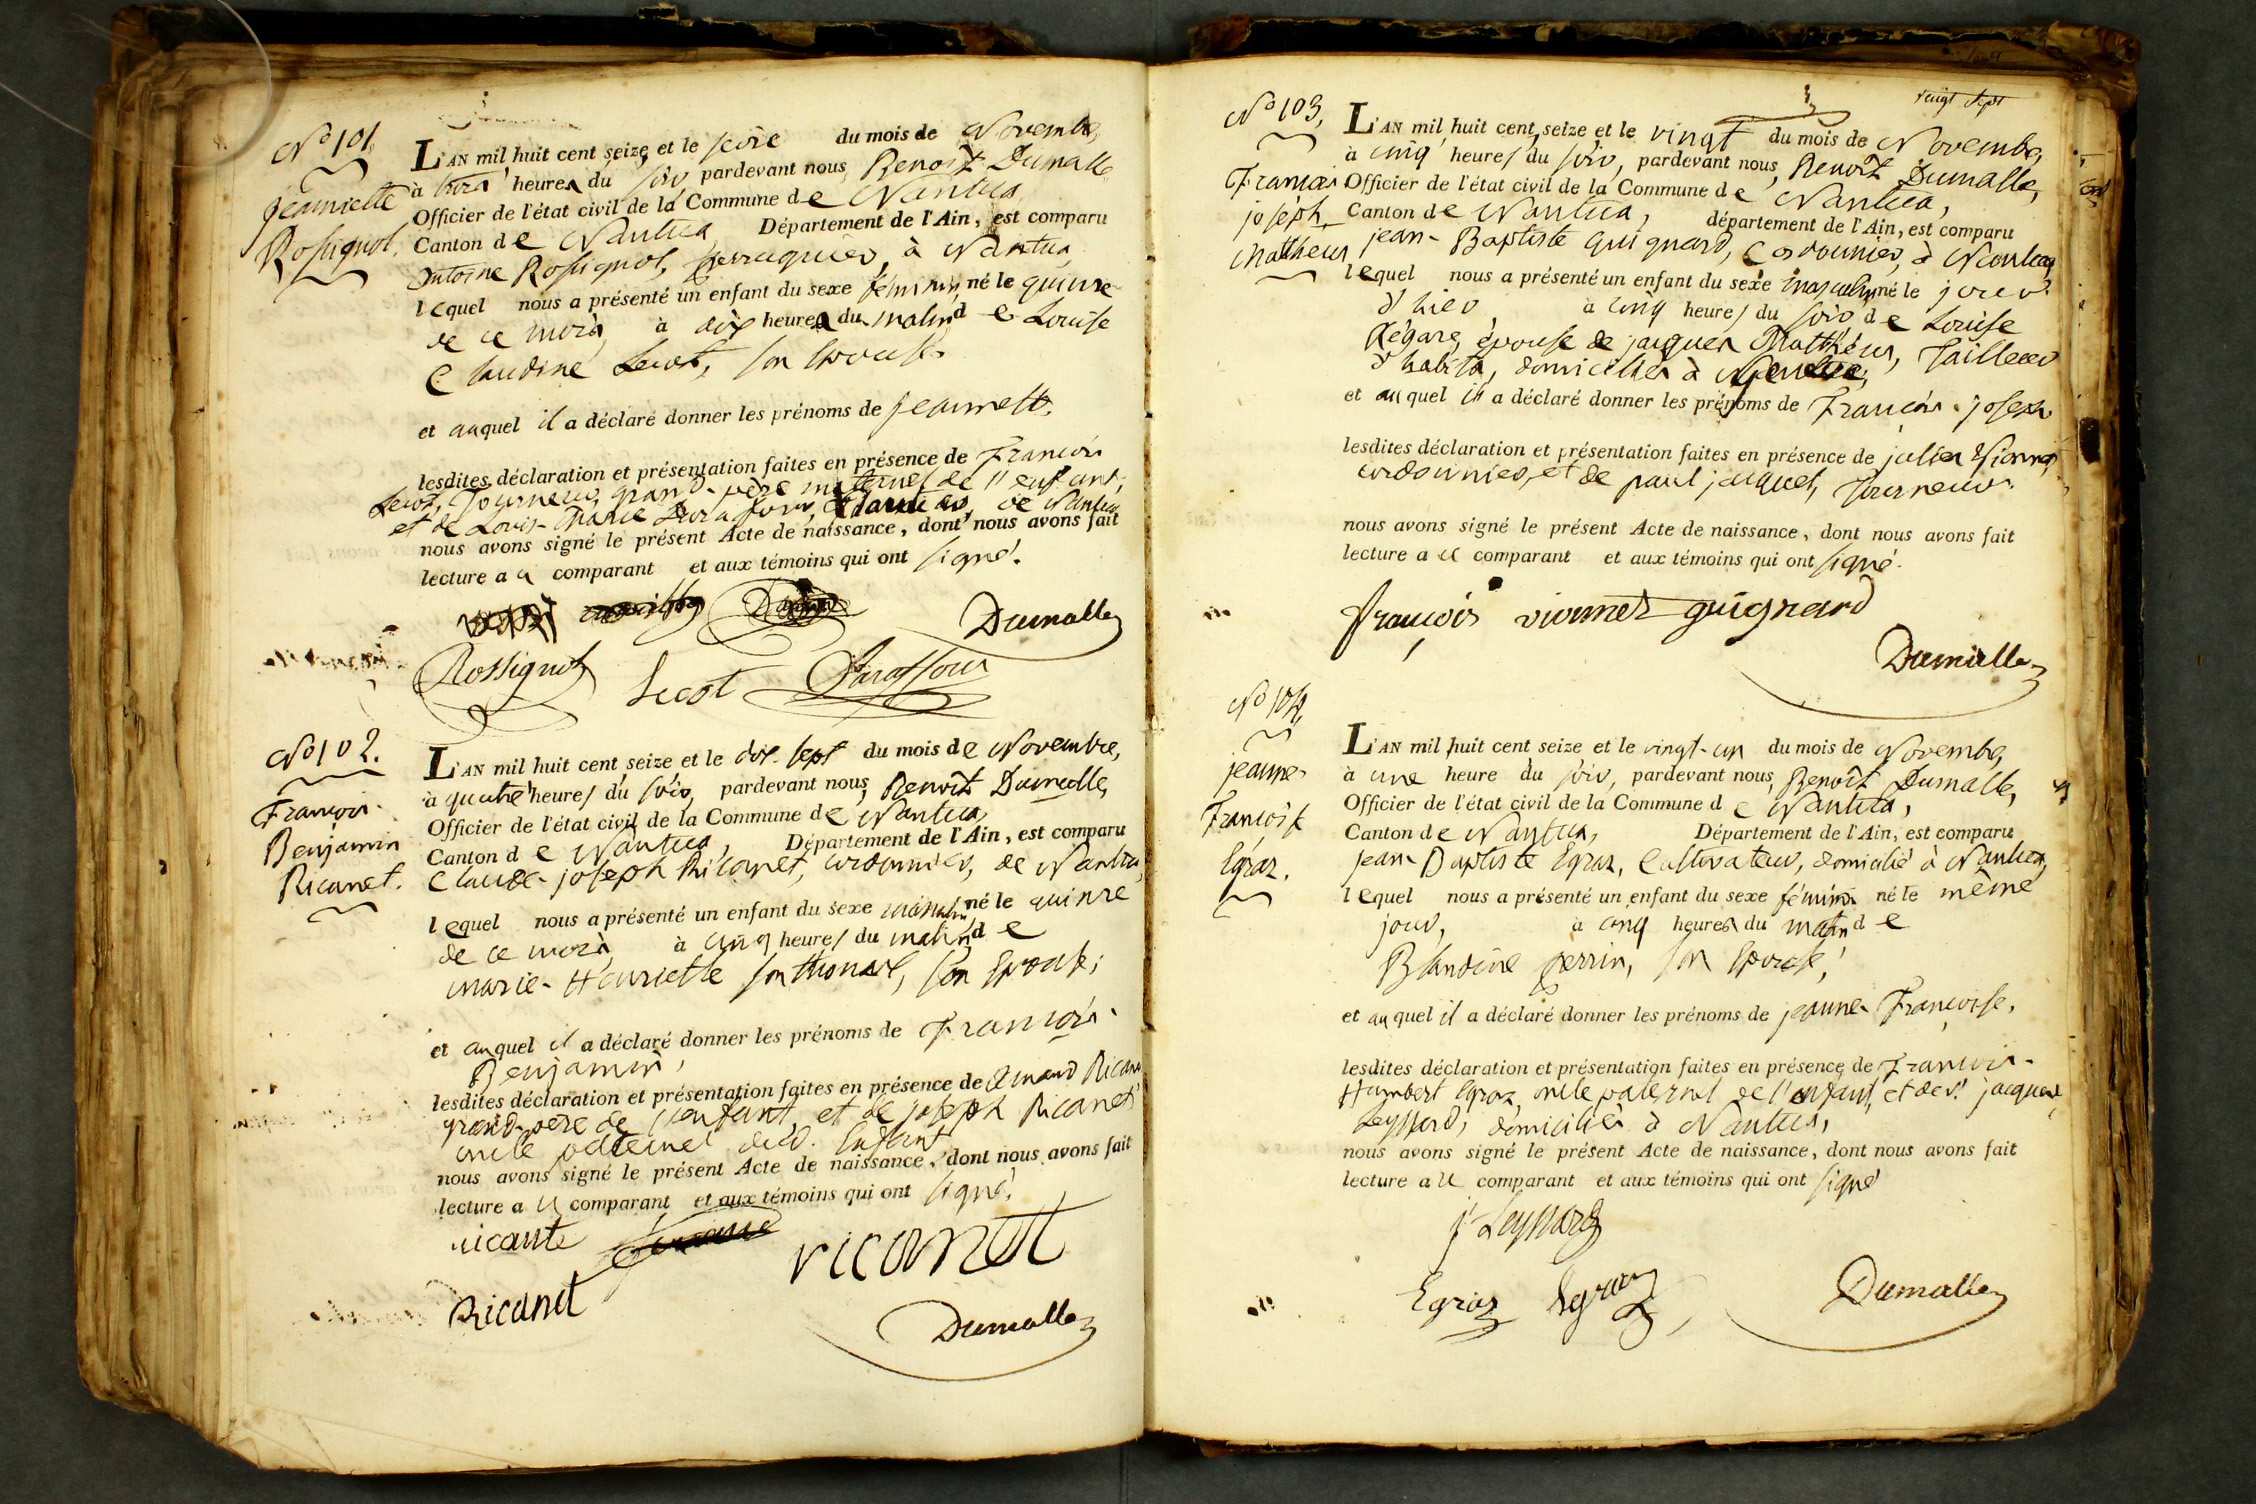 No 101.
jeannette
Rossignol.
L'AN mil huit cent seize et le seize du mois de Novembre,
à trois heures du soir, pardevant nous, Benoît Dumalle,
Officier de l'état civil de la Commune de Nantua
Canton de Nantua Département de l'Ain, est comparu
Antoine Rossignol, perruquier, à Nantua,
lequel nous a présenté un enfant du sexe féminin né le quinze
de ce mois, à dix heures du matin de Louise
Claudine Secot, son épouse.
et auquel il a déclaré donner les prénoms de jeannette.
lesdites déclaration et présentation faites en présence de François
Secot, Tourneur, grand-père maternel de l'enfant,
et de Louis-Marie de Nantua
nous avons signé le présent Acte de naissance, dont nous avons fait
lecture au comparant et aux témoins qui ont signé.
Dumalle
Rossignol Secot
No 102.
François-
Benjamin
Ricanet.
L'AN mil huit cent seize et le dix-sept du mois de Novembre,
à quatre heures du soir, pardevant nous, Benoît Dumalle,
Officier de l'état civil de la Commune de Nantua,
Canton de Nantua, Département de l'Ain, est comparu
Claude-joseph Ricanet, cordonnier, de Nantua,
lequel nous a présenté un enfant du sexe masculin né le quinze
de ce mois, à cinq heures du matin de
marie-Henriette Sonthonax, son épouse;
et auquel il a déclaré donner les prénoms de François-
Benjamin,
lesdites déclaration et présentation faites en présence de Ricanet
grand-père de l'enfant, et de joseph Ricanet
oncle paternel dud. Enfant
nous avons signé le présent Acte de naissance, dont nous avons fait
lecture au comparant et aux témoins qui ont signé.
ricante
ricanett
Ricanet
Dumalle
vingt sept
No 103,
François
joseph
Mathieu
L'AN mil huit cent seize et le vingt du mois de Novembre,
à cinq heures du soir, pardevant nous, Benoît Dumalle,
Officier de l'état civil de la Commune de Nantua,
Canton de Nantua, département de l'Ain, est comparu
jean-Baptiste Guignard, Cordonnier, à Nantua,
lequel nous a présenté un enfant du sexe masculin né le jour
d'hier, à cinq heures du soir de Louise
Régare, épouse de jacques Matthieu, Tailleur
d'habits, domiciliés à Nantua,
et auquel il a déclaré donner les prénoms de François-joseph
lesdites déclaration et présentation faites en présence de
cordonnier, et de paul jacquet, Tourneur.
nous avons signé le présent Acte de naissance, dont nous avons fait
lecture au comparant et aux témoins qui ont signé.
françois vionnet guignard
Dumalle
No 104,
jeanne-
Françoise
Egraz.
L'AN mil huit cent seize et le vingt-un du mois de Novembre,
à une heure du soir, pardevant nous, Benoît Dumalle,
Officier de l'état civil de la Commune de Nantua,
Canton de Nantua, Département de l'Ain, est comparu
jean-Baptiste Egraz, Cultivateur, domicilié à Nantua,
lequel nous a présenté un enfant du sexe féminin né le même
jour, à cinq heures du matin de
Blandine perrin, son épouse,
et auquel il a déclaré donner les prénoms de jeanne-Françoise,
lesdites déclaration et présentation faites en présence de François-
Humbert Egraz, oncle paternel de l'enfant, et de jacques
Leyssard, domiciliés à Nantua,
nous avons signé le présent Acte de naissance, dont nous avons fait
lecture au comparant et aux témoins qui ont signé
j Leyssard
Egraz Egraz
Dumalle